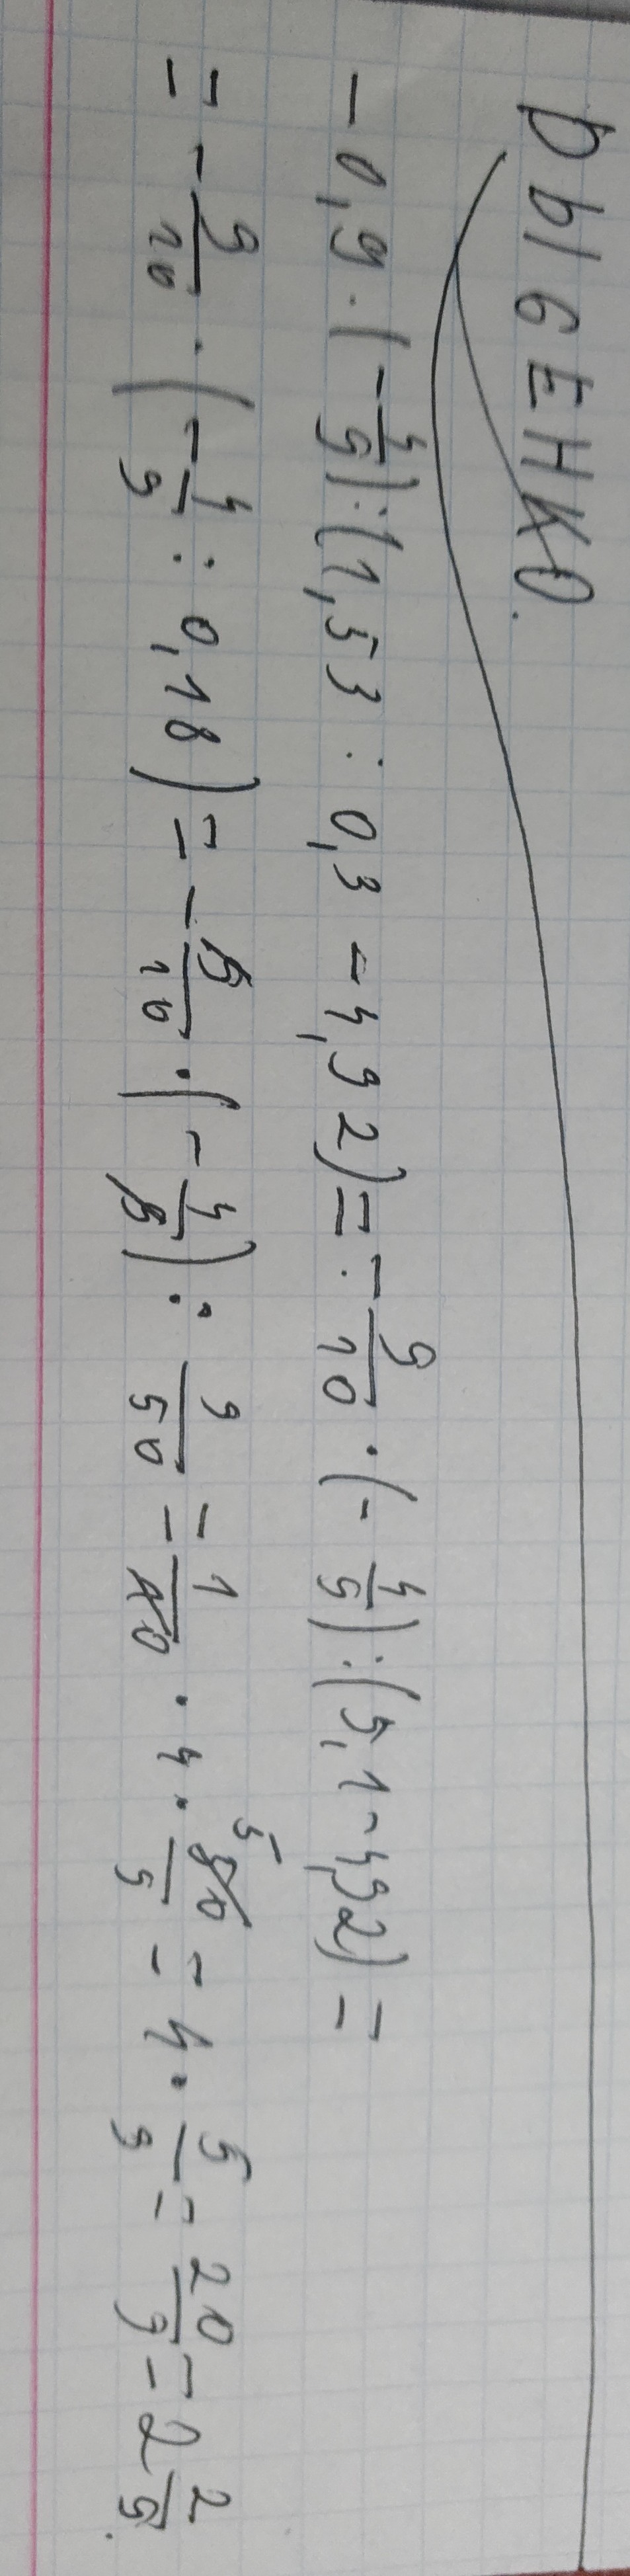 DЫGЕНКО.
- 0,9 · (- 4/9) : (1,53 : 0,3 - 4,92) = - 9/10 · (- 4/9) : (5,1 - 4,92) =
= - 9/10 · (- 4/9 : 0,18) = - 9/10 · (- 4/9) : 9/50 = 1/10 · 4 · 50/9 = 4 · 5/9 = 20/9 = 2 2/9.